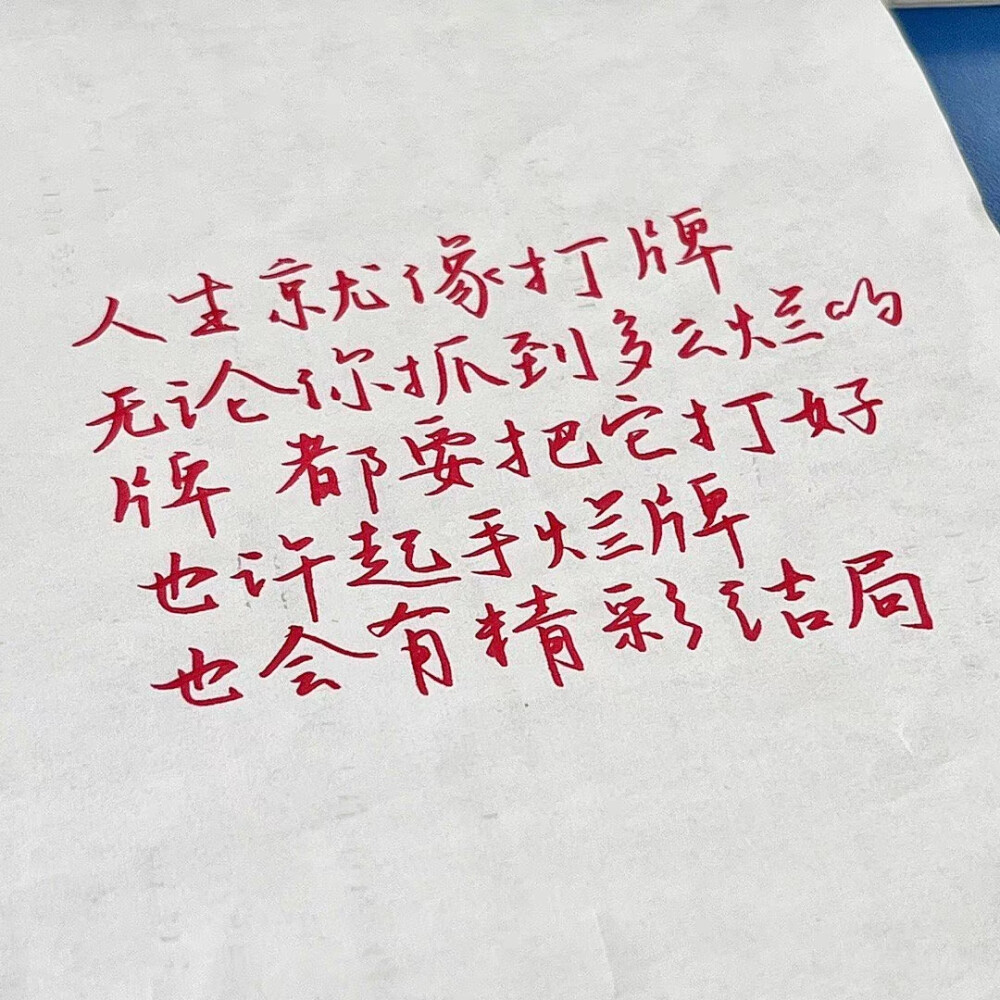 人生就像打牌
无论你抓到多么烂的
牌 都要把它打好
也许起手烂牌
也会有精彩结局